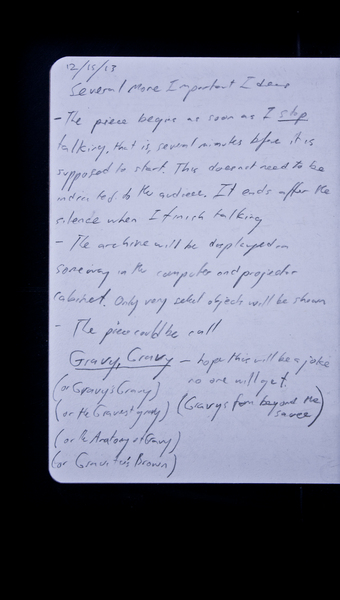 12/15/13
Several More Important Ideas
- The piece begins as soon as I stop
talking, that is, several minutes before it is
supposed to start. This does not need to be
indicated to the audience. It ends after the
silence when I finish talking
- The archive will be displayed in
some way in the computer and projector
cabinet. Only very select objects will be shown
- The piece could be call
Gravy, Gravy - hope this will be a joke
no one will get.
(or Gravy's Gravy)
(or the Gravest gravy) (Gravys from beyond the
sauce)
(or the Anatomy of Gravy)
(or Brown)